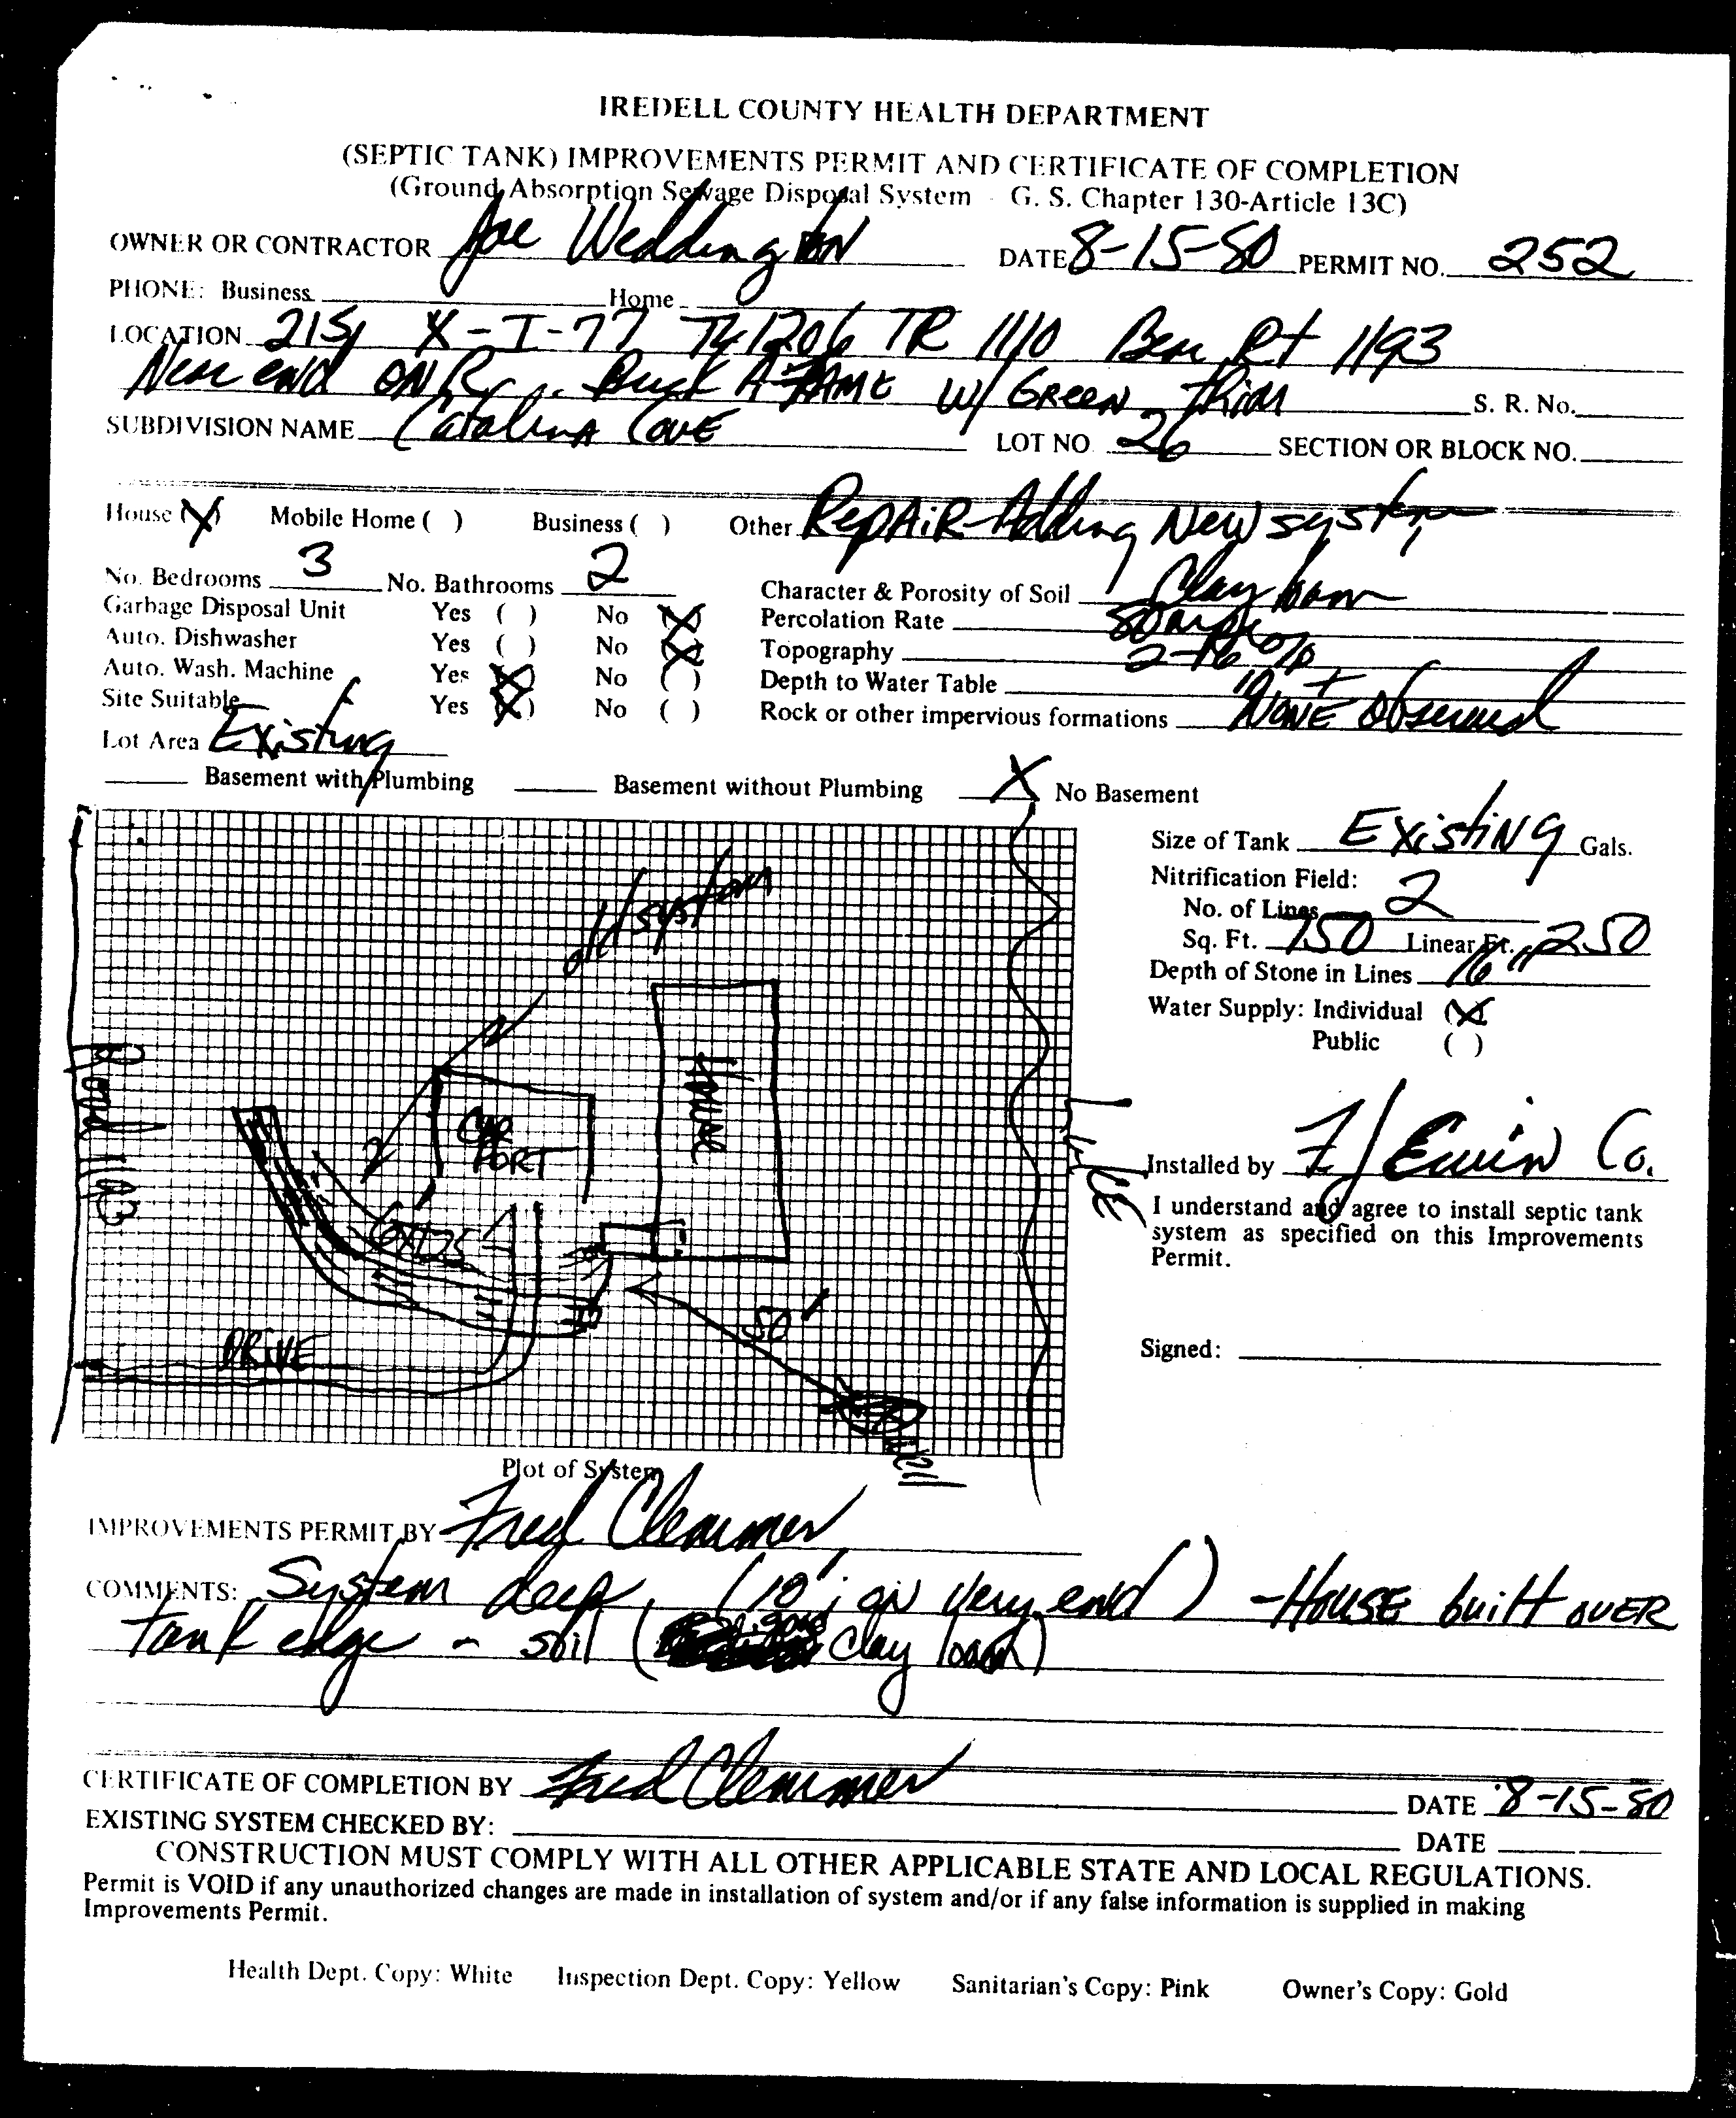 IREDELL COUNTY HEALTH DEPARTMENT
(SEPTIC TANK) IMPROVEMENTS PERMIT AND CERTIFICATE OF COMPLETION
(Ground Absorption Sewage Disposal System - G. S. Chapter 130-Article 13C)
OWNER OR CONTRACTOR Joe Weddington DATE 8-15-80 PERMIT NO. 252
PHONE: Business Home
LOCATION 21S X-I-77 TL 1206 TR 1110 Rt 1193
Near end ON R A FRAME W/ GREEN trim S. R. No.
SUBDIVISION NAME Catalina Cove LOT NO. 26 SECTION OR BLOCK NO.
House (X) Mobile Home ( ) Business ( ) Other Repair-Adding New system
No. Bedrooms 3 No. Bathrooms 2
Character & Porosity of Soil Clay loam
Garbage Disposal Unit Yes ( ) No (X)
Percolation Rate
Auto. Dishwasher Yes ( ) No (X)
Topography 2-16%
Auto. Wash. Machine Yes (X) No ( )
Depth to Water Table
Site Suitable Yes (X) No ( )
Rock or other impervious formations NONE Observed
Lot Area Existing
Basement with Plumbing Basement without Plumbing X No Basement
Size of Tank Existing Gals.
Nitrification Field:
No. of Lines 2
Sq. Ft. 750 Linear Ft. 250
Depth of Stone in Lines 16"
Water Supply: Individual (X)
Public ( )
old system
House
CAR
PORT
Road 1193
6x125
DRIVE
50'
Well
Installed by Ervin Co.
I understand and agree to install septic tank
system as specified on this Improvements
Permit.
Signed:
Plot of System
IMPROVEMENTS PERMIT BY Fred Clemmer
COMMENTS: System deep (10' on very end) - HOUSE built OVER
tank edge - soil ( clay loam)
CERTIFICATE OF COMPLETION BY Fred Clemmer DATE 8-15-80
EXISTING SYSTEM CHECKED BY: DATE
CONSTRUCTION MUST COMPLY WITH ALL OTHER APPLICABLE STATE AND LOCAL REGULATIONS.
Permit is VOID if any unauthorized changes are made in installation of system and/or if any false information is supplied in making
Improvements Permit.
Health Dept. Copy: White Inspection Dept. Copy: Yellow Sanitarian's Copy: Pink Owner's Copy: Gold